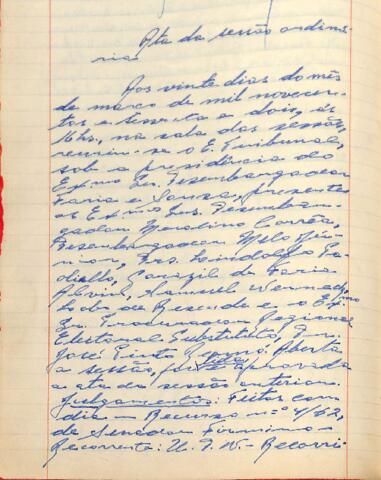 Ata da sessão ordiná-
ria
Aos vinte dias do mês
de março de mil novecen-
tos e sessenta e dois, ás
16hs, na sala das sessões,
reuniu-se o E. Tribunal,
sob a presidência do
Exmo Sr. Desembargador
Faria e Souza, presentes
os Exmos Srs. Desembar-
gador Merolino Corrêa,
Desembargador Melo Jú-
nior, Drs. Lindolfo Pa-
oliello, de Faria
Alvim, Samuel Werneck,
Lobo de Resende e o Exmo
Sr. Procurador Regional
Eleitoral Substituto, Dr.
José Pinto Aberta
a sessão, foi lida e aprovada
a ata da sessão anterior.
Julgamentos: Feitos com
dia - Recurso nº 4/62,
de Senador Firmino -
Recorrente: U.D.N. - Recorri-